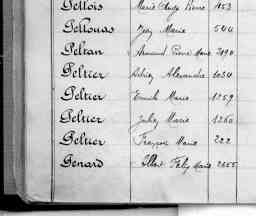 Pellois Marie Ange Pierre 453
Pellouas Jean Marie 544
Peltran Armand Pierre Marie
Peltier Alexandre 1034
Peltier Emile Marie 1259
Peltier Jules Marie 1260
Peltier François Marie 222
Penard Albert Félix Marie 2855